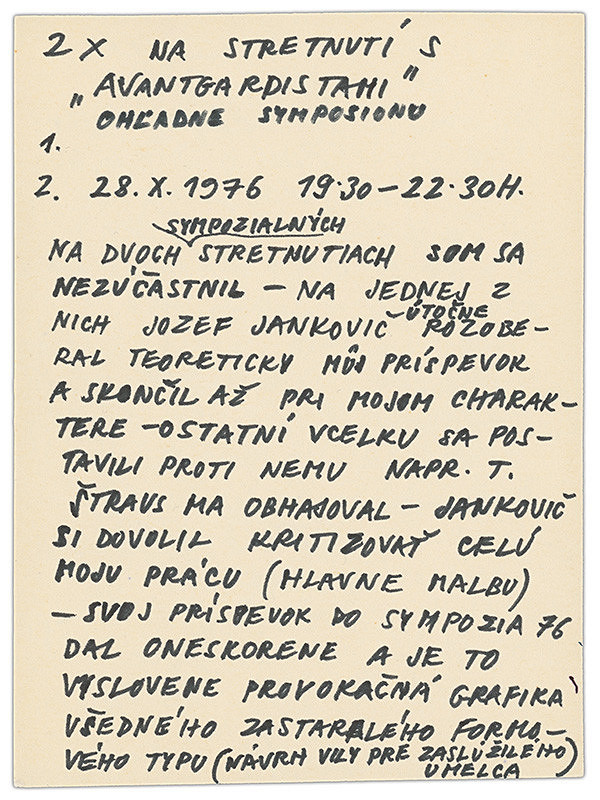 2 X NA STRETNUTÍ S
„AVANTGARDISTAMI"
OHĽADNE SYMPOSIONU
1.
2. 28. X. 1976 19·30 – 22·30H.
SYMPOZIALNÝCH
NA DVOCH STRETNUTIACH SOM SA
NEZÚČASTNIL – NA JEDNEJ Z
ÚTOČNE
NICH JOZEF JANKOVIČ ROZOBE-
RAL TEORETICKY MÔJ PRÍSPEVOK
A SKONČIL AŽ PRI MOJOM CHARAK-
TERE – OSTATNÍ VCELKU SA POS-
TAVILI PROTI NEMU NAPR. T.
ŠTRAUS MA OBHAJOVAL – JANKOVIČ
SI DOVOLIL KRITIZOVAŤ CELÚ
MOJU PRÁCU (HLAVNE MALBU)
– SVOJ PRÍSPEVOK DO SYMPOZIA 76
DAL ONESKORENE A JE TO
VYSLOVENE PROVOKAČNÁ GRAFIKA
VŠEDNÉHO ZASTARALÉHO FORMO-
VÉHO TYPU (NÁVRH VILY PRE ZASLÚŽILÉHO
UMELCA)